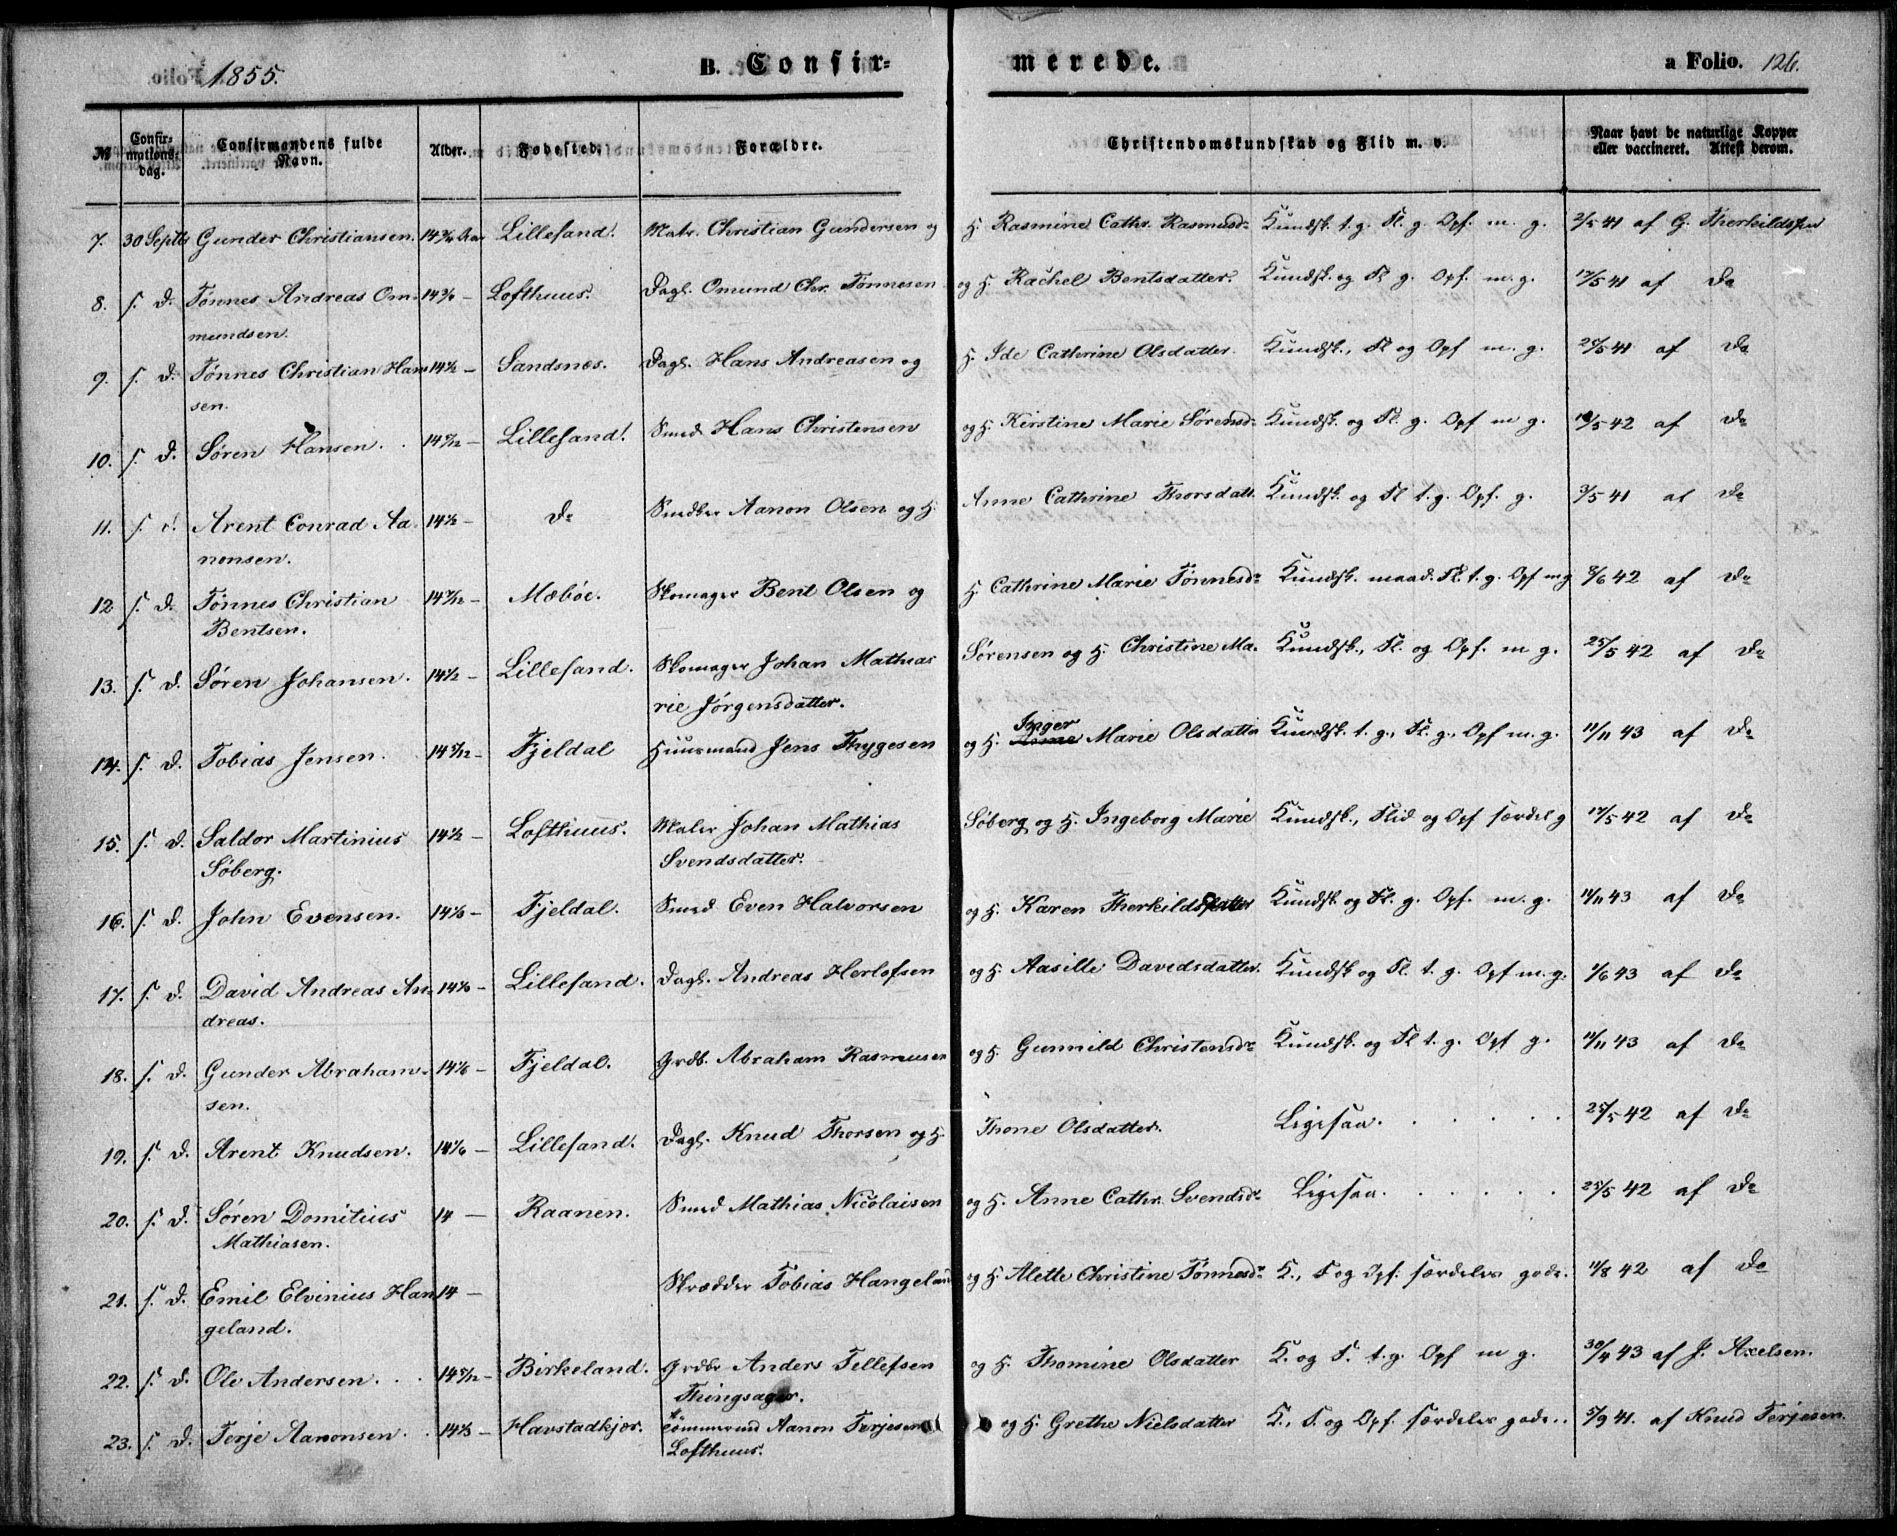 1855.
B. Confir=
merede.
a Folio. 126.
No
Confirmations-dag.
Confirmandens fulde Navn.
Alder.
Fødested.
Forældre.
Christendomskundskab og Flid m. v.
Naar havt de naturlige Kopper eller vaccineret. Attest derom.
7. 30 Septbr Gunder Christiansen. 14 3/4 Aar Lillesand. Matr. Christian Gundersen og H. Rasmine Cathr. Rasmusd= Kundsk. t.g. Fl. g. Opf. m. g. 2/5 41 af G. Therkildsen
8. s. D. Tønnes Andreas Om- 14 3/4 - Lofthuus. Dagl. Omund Chr. Tønnesen og H. Rachel Bentsdatter. Kundsk. og Fl g. Opf. m. g. 17/5 41 af Do
mundsen.
9. s. D. Tønnes Christian Han- 14 1/2 - Sandsnæs. Dagl. Hans Andreasen og H. Ide Cathrine Olsdatter. Kundsk., Fl og Opf m. g. 20/5 41 af Do
sen.
10. s. D. Søren Hansen. 14 7/12 - Lillesand. Smed Hans Christensen og H. Kirstine Marie Sørensd= Kundsk. og Fl. g. Opf m g. 18/5 42 af Do
11. s. d. Arent Conrad Aa- 14 1/2 - Do Snedker Aanon Olsen og H. Anne Cathrine Thorsdatt. Kundsk. og Fl t.g. Opf. g. 3/5 41 af Do
nonsen.
12 s. D. Tønnes Christian 14 7/12 - Mæbøe. Skomager Bent Olsen og H. Cathrine Marie Tønnesd= Kundsk. maad. Fl. t. g. Opf m g 8/6 42 af Do
Bentsen.
13. s. D. Søren Johansen. 14 1/2 - Lillesand. Skomager Johan Mathias Sørensen og H. Christine Ma- Kundsk., Fl. og Opf. m g. 25/5 42 af Do
rie Jörgensdatter.
Inger
14. s. D. Tobias Jensen. 14 5/12 - Fjeldal Huusmand Jens Thygesen og H. Anne Marie Olsdatter Kundsk. t. g., Fl. g., Opf m. g. 11/11 43 af Do
15. s. D. Saldor Martinius 14 1/2 - Lofthuus. Maler Johan Mathias Søberg og H. Ingeborg Marie Kundsk., Flid og Opf særdel g 17/5 42 af Do
Søberg. Svendsdatter.
16. s. D. John Evensen. 14 1/3 - Fjeldal. Smed Even Halvorsen og H. Karen Therkildsdatter Kundsk. og Fl. g. Opf. m. g. 11/11 43 af Do
17. s. D. David Andreas An- 14 1/3 - Lillesand. Dagl. Andreas Herlofsen og H. Aasille Davidsdatter. Kundsk og Fl. t. g. Opf m. g. 1/6 43 af Do
dreas.
18. s. D. Gunder Abraham- 14 1/6 - Fjeldal. Grdb. Abraham Rasmusen og H. Gunnild Christensd= Kundsk. og Fl t. g. Opf g. 11/11 43 af Do
sen.
19. s. D. Arent Knudsen. 14 1/6 - Lillesand. Dagl. Knud Thorsen og H. Thone Olsdatter. Ligesaa. 25/5 42 af Do
20. s. D. Søren Domitius 14 - Raanen. Smed Mathias Nicolaisen og H. Anne Cathr. Svendsd= Ligesaa. 25/5 42 af Do
Mathiasen.
21. s. D. Emil Elvinius Han 14 - Skrædder Tobias Hangeland og H. Alette Christine Tønnesd= K., F og Opf. særdeles gode. 11/8 42 af Do
geland.
22. s. D. Ole Andersen. 14 5/12 - Birkeland. Grdbr Anders Tellefsen og H. Thomine Olsdatter K. og F. t. g. Opf m g. 30/4 43 af J. Axelsen.
Thingsager.
23. s. D. Terje Aanonsen. 14 2/3 - Havstadkjær. Tømmermd Aanon Terjesen og H. Grethe Nielsdatter K., F. og Opf. særdeles gode. 5/9 41. af Knud Terjesen.
Lofthuus.